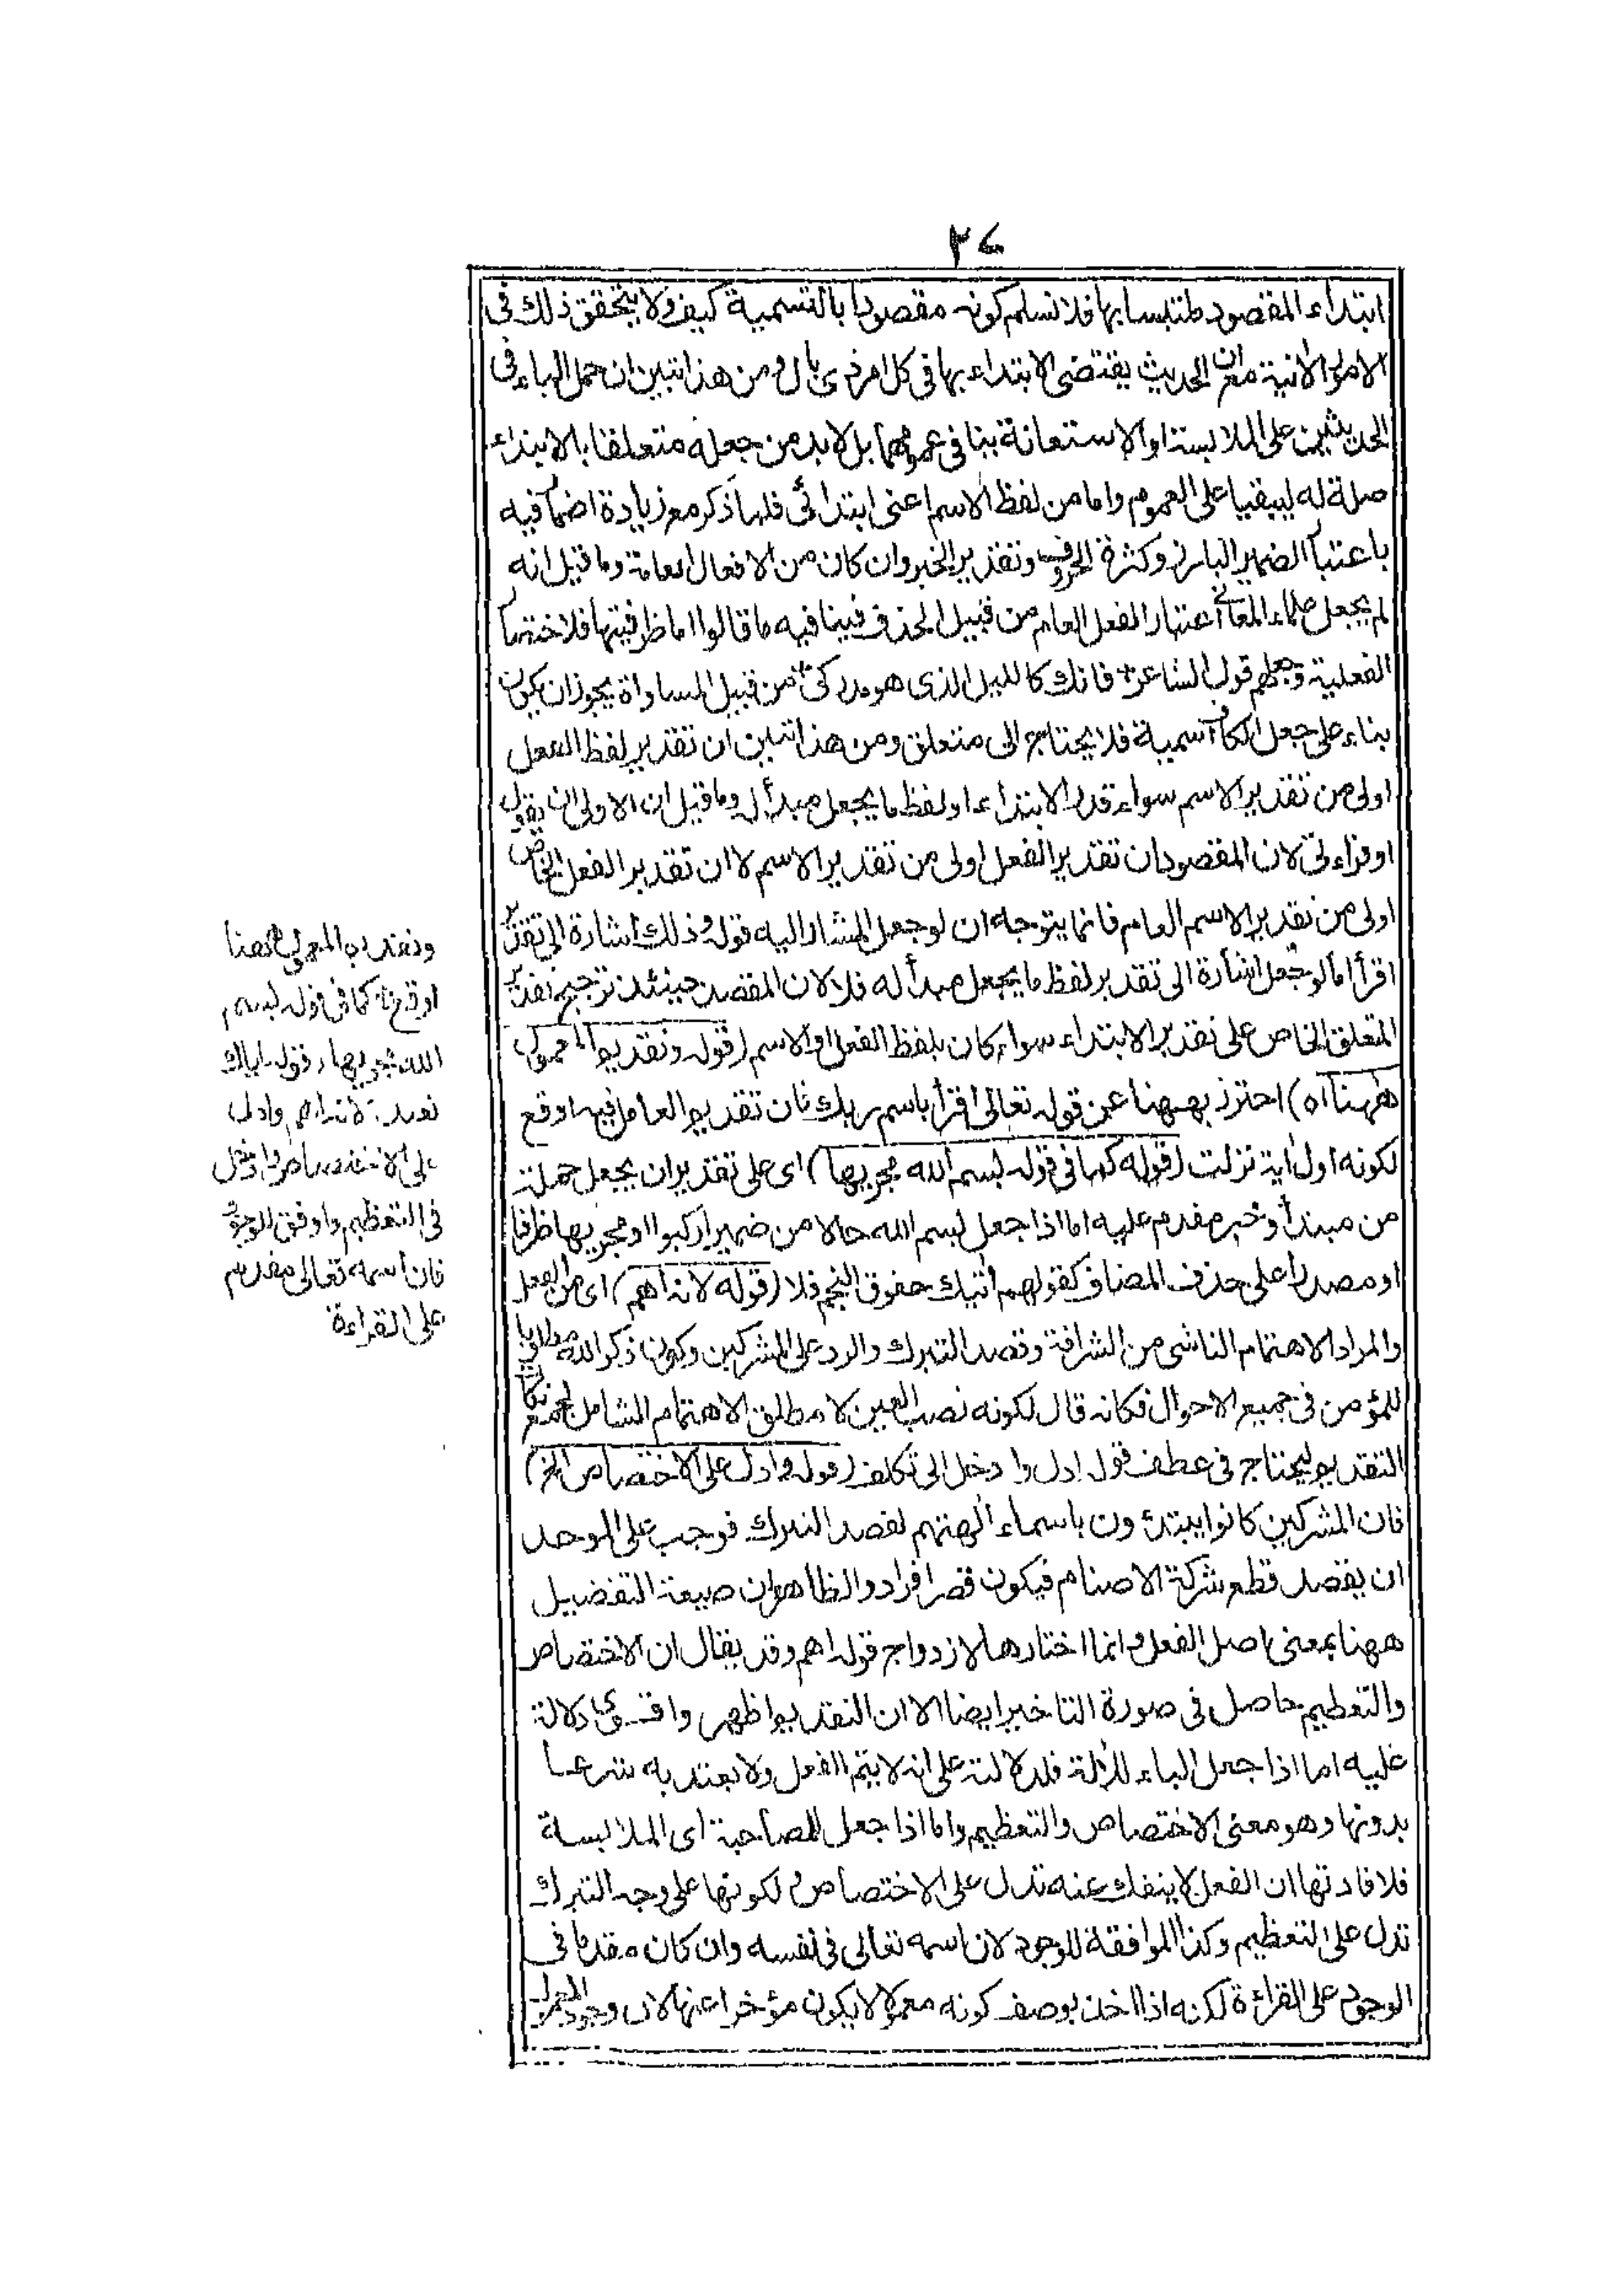 ٢٧
ابتداء المقصود ملتبسا بها فلا نسلم كونه مقصودا بالتسمية كيف ولا يتحقق ذلك فى
الامور الآنية مع ان الحديث يقتضى الابتداء بها فى كل امر ذى بال ومن هذا تبين ان حمل الباء فى
الحديثين على الملابسة او الاستعانة ينافى عمومهما بل لا بد من جعله متعلقا بالابتداء
صلة له ليبقيا على العموم واما من لفظ الاسم اعنى ابتدائى فلما ذكر مع زيادة اضمار فيه
باعتبار الضمير البارز وكثرة الحروف وتقدير الخبر وان كان من الافعال العامة وما قيل انه
لم يجعل علماء المعانى اعتبار الفعل العام من قبيل الحذف فينافيه ما قالوا اما ظرفيتها فلاختصار
الفعلية وجعلهم قول الشاعر فانك كالليل الذى هو مدركى من قبيل المساواة يجوز ان يكون
بناء على جعل الكاف اسمية فلا يحتاج الى متعلق ومن هذا تبين ان تقدير لفظ الفعل
اولى من تقدير الاسم سواء قدر الابتداء او لفظ ما يجعل مبدأ له وما قيل ان الاولى ان يقول
او قراءتى لان المقصود ان تقدير الفعل اولى من تقدير الاسم لا ان تقدير الفعل الخاص
اولى من تقدير الاسم العام فانما يتوجه ان لو جعل المشار اليه قوله وذلك اشارة الى تقدير
اقرأ اما لو جعل اشارة الى تقدير لفظ ما يجعل مبدأ له فلا لان المقصد حينئذ ترجيح تقدير
المتعلق الخاص على تقدير الابتداء سواء كان بلفظ الفعل او الاسم (قوله وتقديم المعمول
ههنا اه) احترز بههنا عن قوله تعالى اقرأ باسم ربك فان تقديم العامل فيه اوقع
لكونه اول آية نزلت (قوله كما فى قوله بسم الله مجريها) اى على تقدير ان يجعل جملة
من مبتدأ وخبر مقدم عليه اما اذا جعل بسم الله حالا من ضمير اركبوا او مجريها ظرفا
او مصدرا على حذف المضاف كقولهم آتيك خفوق النجم فلا (قوله لانه اهم) اى من الفعل
والمراد الاهتمام الناشى من الشرافة وقصد التبرك والرد على المشركين وكون ذكر الله مطلوبا
للمؤمن فى جميع الاحوال فكانه قال لكونه نصب العين لا مطلق الاهتمام الشامل لجميع نكات
التقديم ليحتاج فى عطف قوله ادل وادخل الى تكلف (قوله وادل على الاختصاص الخ)
فان المشركين كانوا يبتدؤن باسماء آلهتهم لقصد التبرك فوجب على الموحد
ان يقصد قطع شركة الاصنام فيكون قصر افراد والظاهر ان صيغة التفضيل
ههنا بمعنى اصل الفعل وانما اختارها لازدواج قوله اهم وقد يقال ان الاختصاص
والتعظيم حاصل فى صورة التاخير ايضا الا ان التقديم اظهر واقوى دلالة
عليه اما اذا جعل الباء للآلة فلدلالته على انه لا يتم الفعل ولا يعتد به شرعا
بدونها وهو معنى الاختصاص والتعظيم واما اذا جعل للمصاحبة اى الملابسة
فلافادتها ان الفعل لا ينفك عنه تدل على الاختصاص ولكونها على وجه التبرك
تدل على التعظيم وكذا الموافقة للوجود لان اسمه تعالى فى نفسه وان كان مقدما فى
الوجود على القراءة لكنه اذا اخذ بوصف كونه معمولا لا يكون مؤخرا عنها لان وجود المعمول
وتقديم المعمول ههنا
اوقع كما فى قوله بسم
الله مجريها وقوله اياك
نعبد لانه اهم وادل
على الاختصاص وادخل
فى التعظيم واوفق للوجود
فان اسمه تعالى مقدم
على القراءة